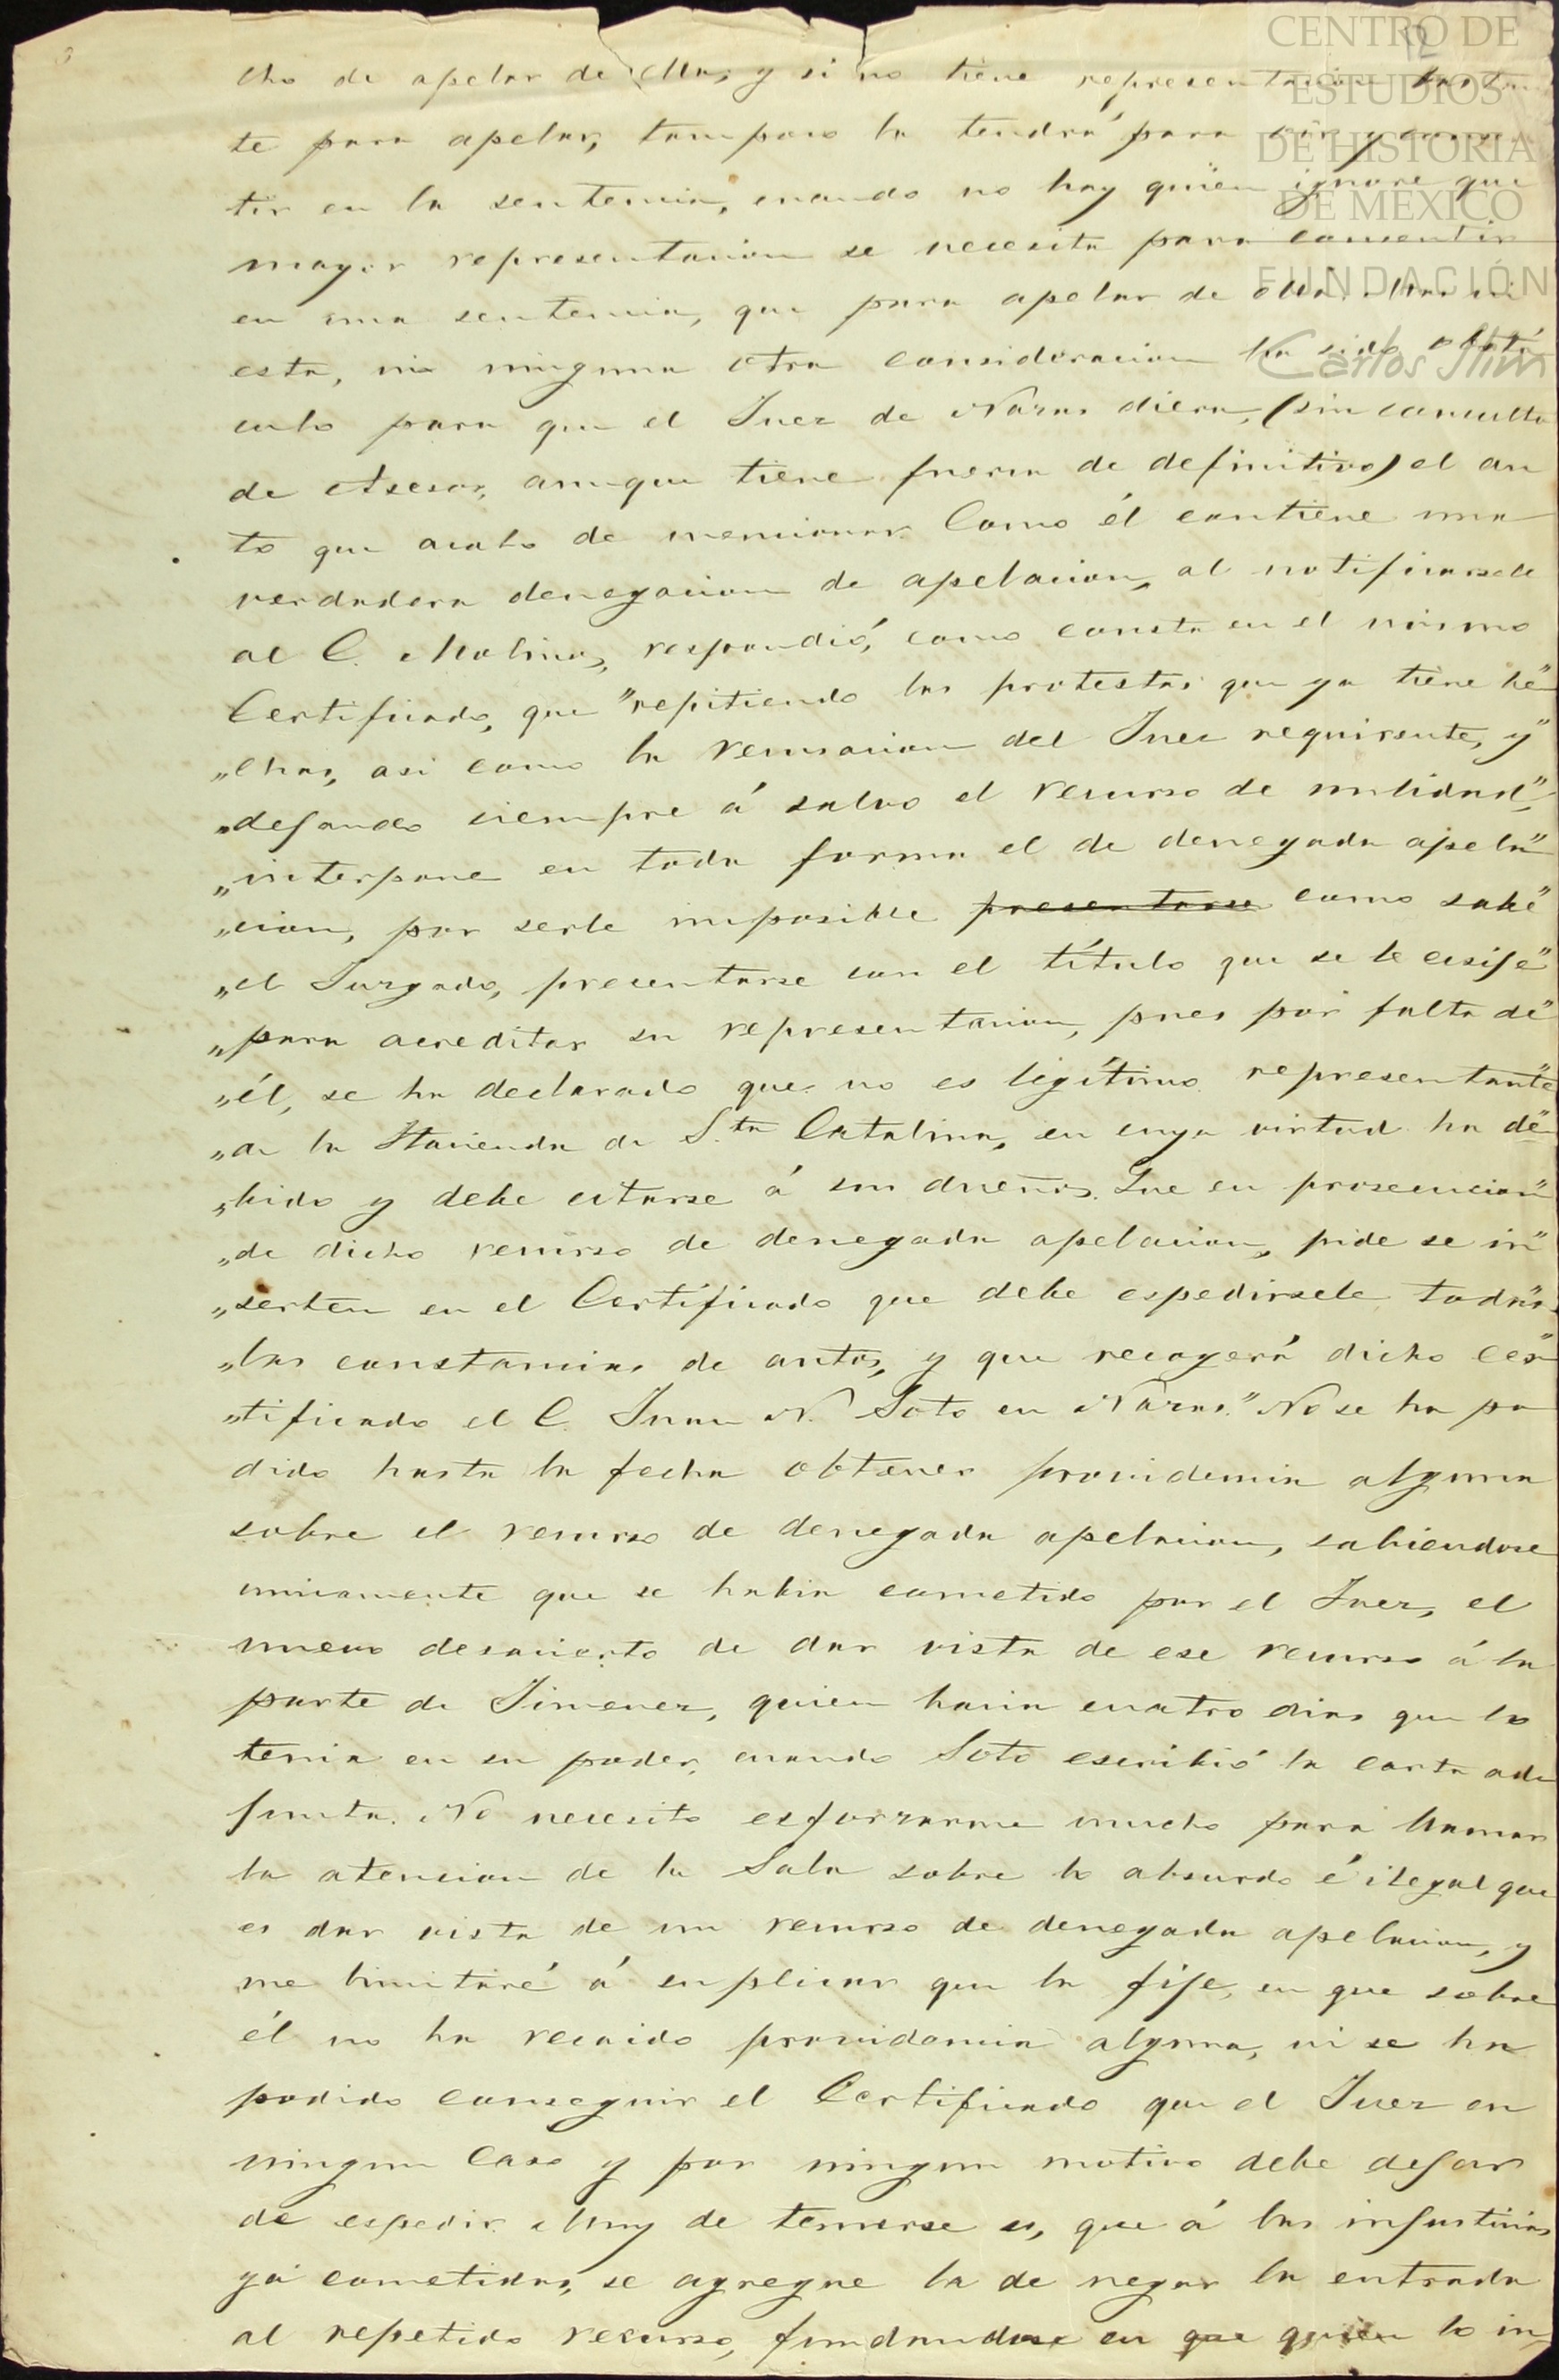 CENTRO DE
ESTUDIOS
DE HISTORIA
DE MEXICO
FUNDACIÓN
Carlos Slim
cho de apelar de ella; y si no tiene representacion bastan
te para apelar, tampoco la tendrá para oir y consen
tir en la sentencia, cuando no hay quien ignore que
mayor representacion se necesita para consentir
en una sentencia, que para apelar de ella. Mas ni
esta, ni ninguna otra consideracion ha sido obstá
culo para que el Juez de Nazas diera, (sin consulta
de Asesor, aunque tiene fuerza de definitivo) el au
to que acabo de mencionar. Como él contiene una
verdadera denegacion de apelacion, al notificarsele
al C. Molina, respondió, como consta en el mismo
Certificado, que "repitiendo las protestas que ya tiene he"
"chas, asi como la recusacion del Juez requirente, y"
"dejando siempre á salvo el recurso de nulidad,"
"interpone en toda forma el de denegada apela"
"cion, por serle imposible presentarse como sabe"
"el Juzgado, presentarse con el título que se le ecsije"
"para acreditar su representacion, pues por falta de"
"él, se ha declarado que no es legítimo representante"
"de la Hacienda de S.ta Catalina, en cuya virtud ha de"
"bido y debe citarse á sus dueños. Que en prosecucion"
"de dicho recurso de denegada apelacion, pide se in"
"serten en el Certificado que debe espedirsele todas"
"las constancias de autos, y que recogerá dicho cer"
"tificado el C. Juan N. Soto en Nazas." No se ha po
dido hasta la fecha obtener providencia alguna
sobre el recurso de denegada apelacion, sabiendose
unicamente que se habia cometido por el Juez, el
nuevo desacierto de dar vista de ese recurso á la
parte de Jimenez, quien hacia cuatro dias que lo
tenia en su poder, cuando Soto escribió la carta ad
junta. No necesito esforzarme mucho para llamar
la atencion de la Sala sobre lo absurdo é ilegal que
es dar vista de un recurso de denegada apelacion, y
me limitaré á suplicar que la fije, en que sobre
él no ha recaido providencia alguna, ni se ha
podido conseguir el Certificado que el Juez en
ningun caso y por ningun motivo debe dejar
de espedir. Muy de temerse es, que á las injusticias
ya cometidas, se agregue la de negar la entrada
al repetido recurso, fundandose en que quien lo in